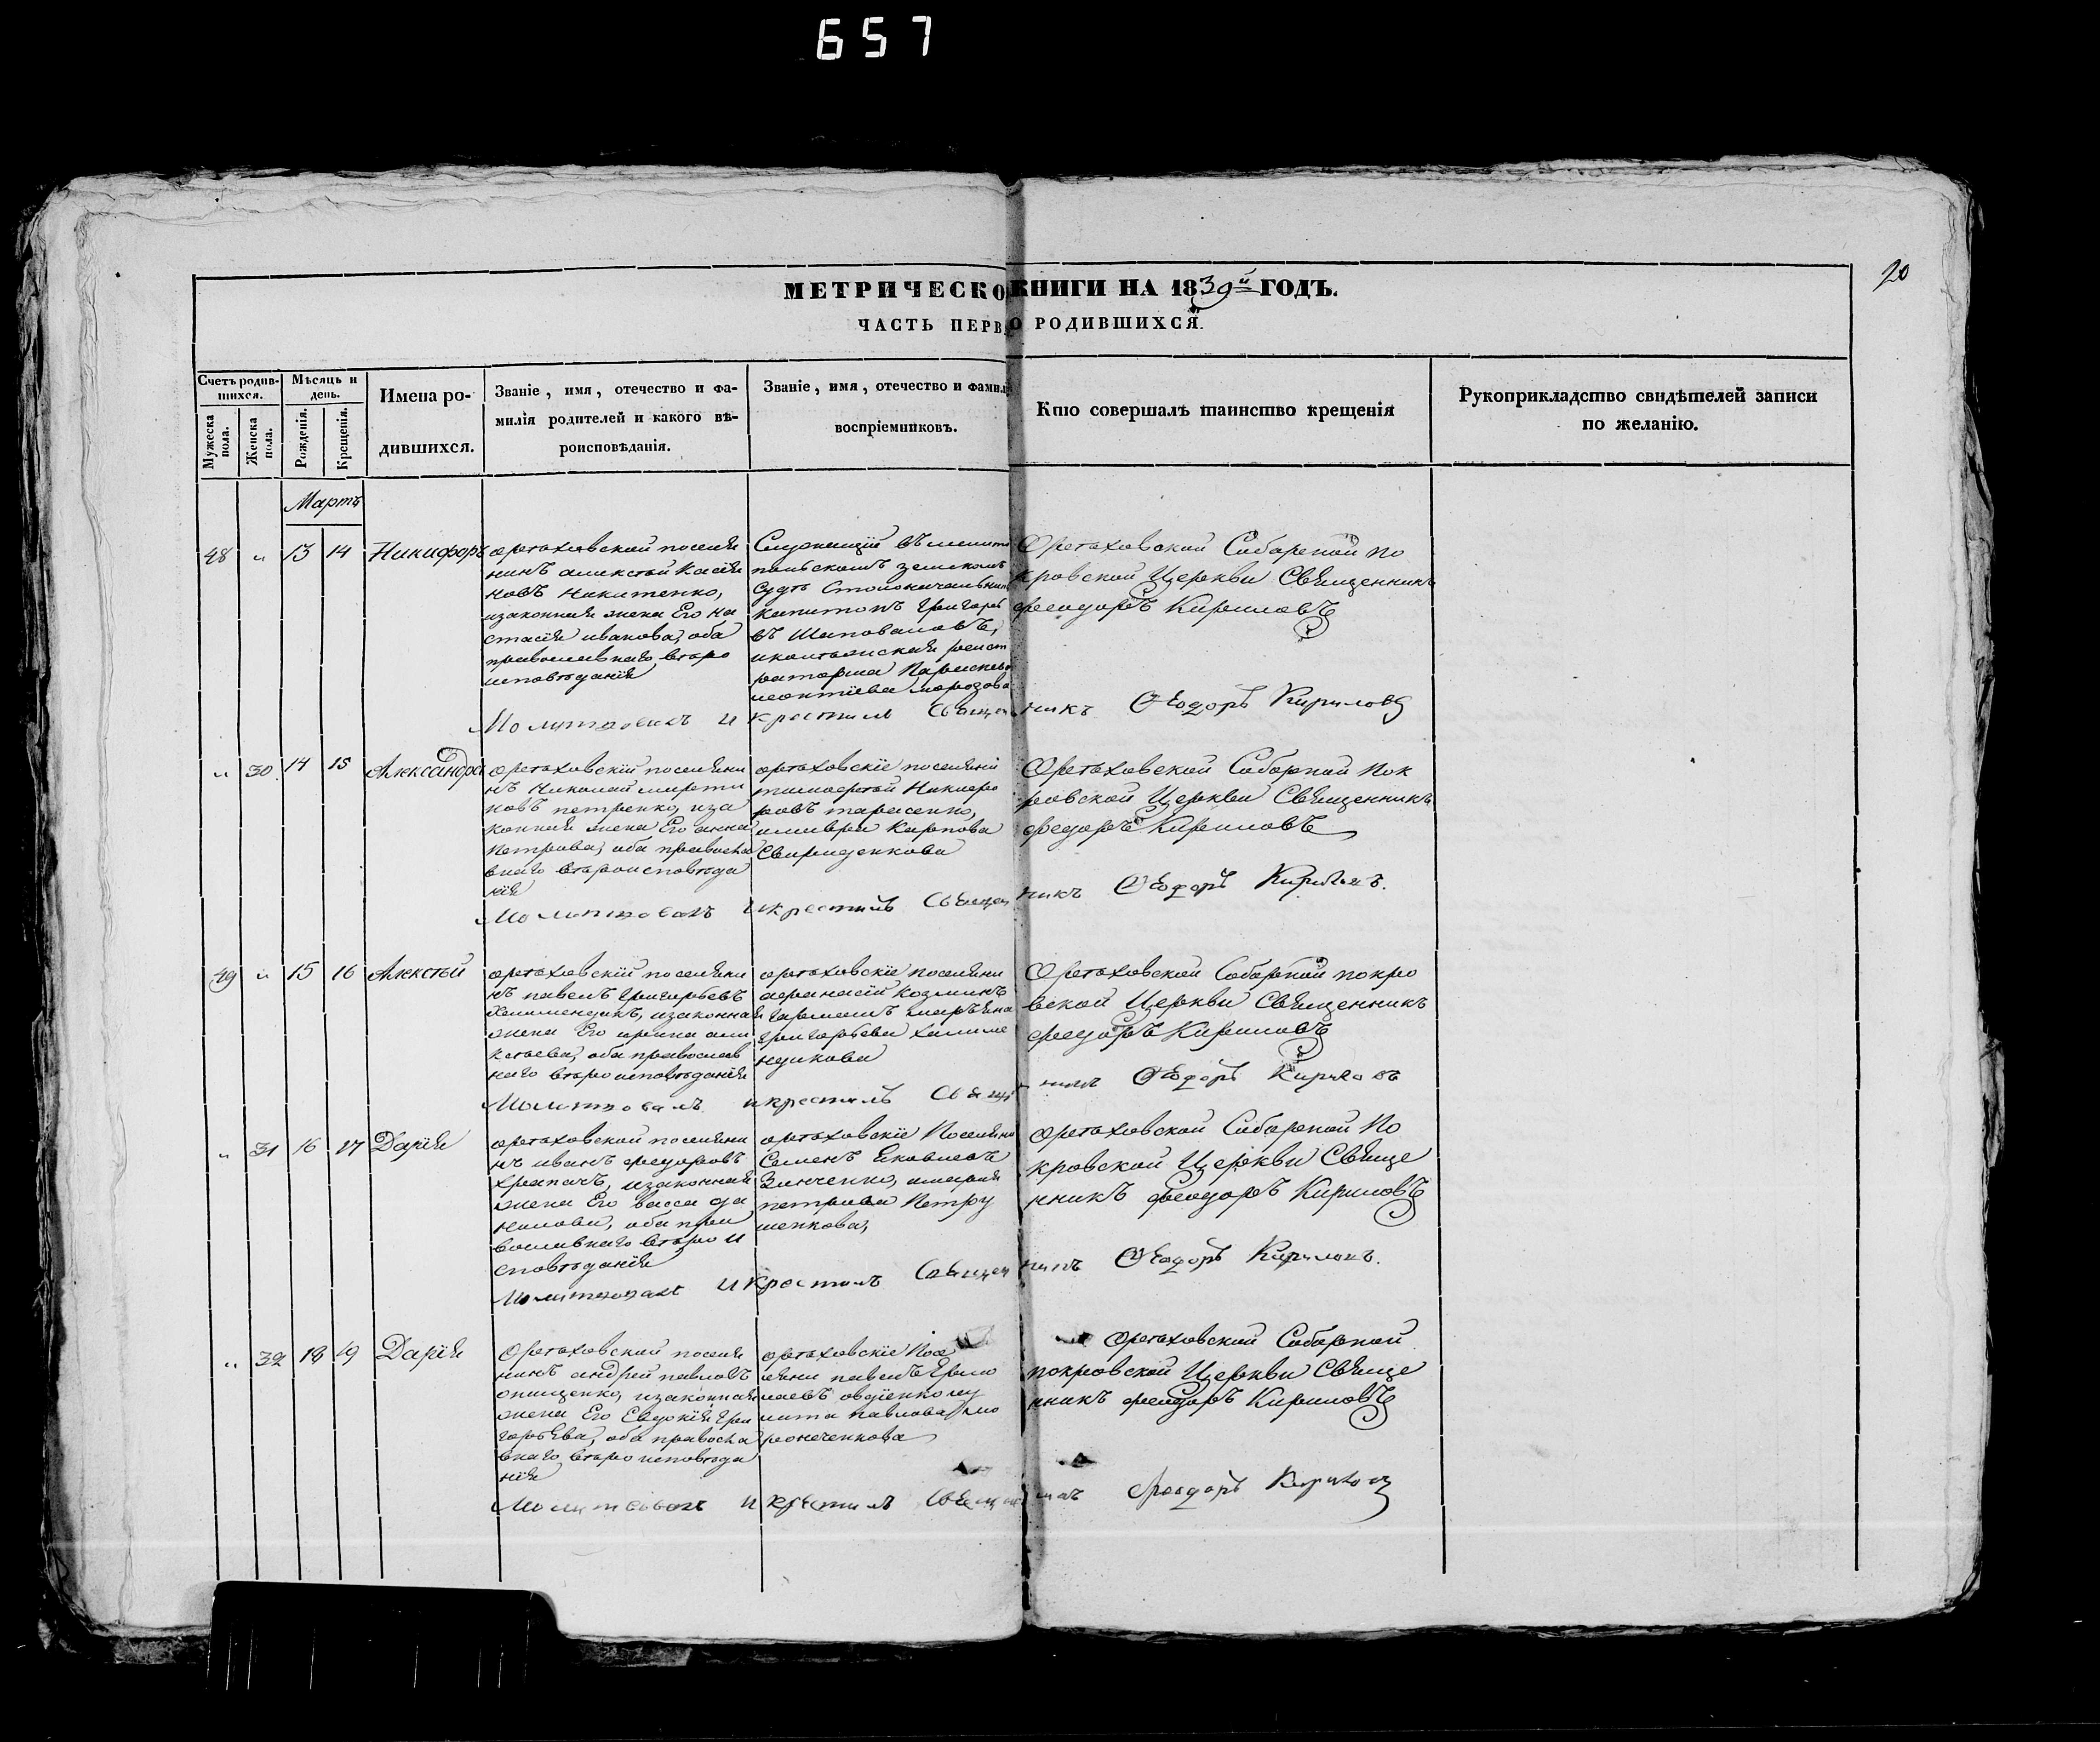 657
20
МЕТРИЧЕСКО КНИГИ НА 1839й ГОДЪ.
ЧАСТЬ ПЕРВ О РОДИВШИХСЯ.
Счетъ родив-
шихся.
Мужеска пола.
Женска пола.
Мѣсяцъ и
день.
Рожденія.
Крещенія.
Имена ро-
дившихся.
Званіе, имя, отечество и фа-
милія родителей и какого вѣ-
роисповѣданія.
Званіе, имя, отечество и фамил
воспріемниковъ.
Кто совершалъ таинство крещенія
Рукоприкладство свидѣтелей записи
по желанію.
Мартъ
48 " 13 14 Никифоръ
орѣховской поселя
нинъ алексѣй Касія
новъ Никитенко,
изаконная жена Его На
стасія иванова, оба
православнаго вѣро
исповѣданія
Служащій въ мелито
польскомъ земскомъ
Судѣ Столоначальник
капитонъ Григорье
въ Шаповаловъ,
регист
раторша Параскева
леонтіева морозова
Орѣховской Соборной по
кровской Церкви Священникъ
феодоръ Кириловъ
Молитвовалъ и крестилъ Священникъ Феодоръ Кириловъ
" 30 14 15 Александра
орѣховскій поселяни
нъ Николай марти
новъ петренко, иза
конная жена Его анна
Петрова, оба правосла
внаго вѣроисповѣда
нія
орѣховскіе поселяни
тимофѣй Никифо
ровъ тарасенко,
Карпова
Свириденкова
Орѣховской Соборной Пок
ровской Церкви Священникъ
феодоръ Кириловъ
Молитвовалъ и крестилъ Священникъ Феодоръ Кириловъ.
49 " 15 16 Алексѣй
орѣховскій поселяни
нъ павелъ Григорьевъ
Халимендикъ, изаконная
жена Его ирина але
ксѣева, оба православ
наго вѣроисповѣданія
орѣховскіе поселяни
афанасій Козминъ
Григорьева Халиме
ндикова
Орѣховской Соборной покро
вской Церкви Священникъ
феодоръ Кириловъ
Молитвовалъ и крестилъ Священникъ Феодоръ Кириловъ
" 31 16 17 Дарія
орѣховской поселяни
нъ иванъ феодоровъ
храпачъ, изаконная
жена Его васса да
нилова, оба пра
вославнаго вѣро и
сповѣданія
орѣховскіе Поселяни
Семенъ Яковлевъ
Зинченко, имарія
петрова Петру
шенкова,
Орѣховской Соборной По
кровской Церкви Свяще
нникъ феодоръ Кириловъ
Молитвовалъ и крестилъ Священникъ Феодоръ Кириловъ.
" 32 18 19 Дарія
Орѣховской поселя
нинъ андрей павловъ
онищенко, изаконная
жена Его Евдокія Гри
горьева, оба правосла
внаго вѣроисповѣда
нія
орѣховскіе Посе
ляни павелъ Ермо
лаевъ овдіенко иу
лита павлова
Орѣховской Соборной
покровской Церкви Свяще
нникъ феодоръ Кириловъ
Молитвовалъ и крестилъ Священникъ Феодоръ Кириловъ